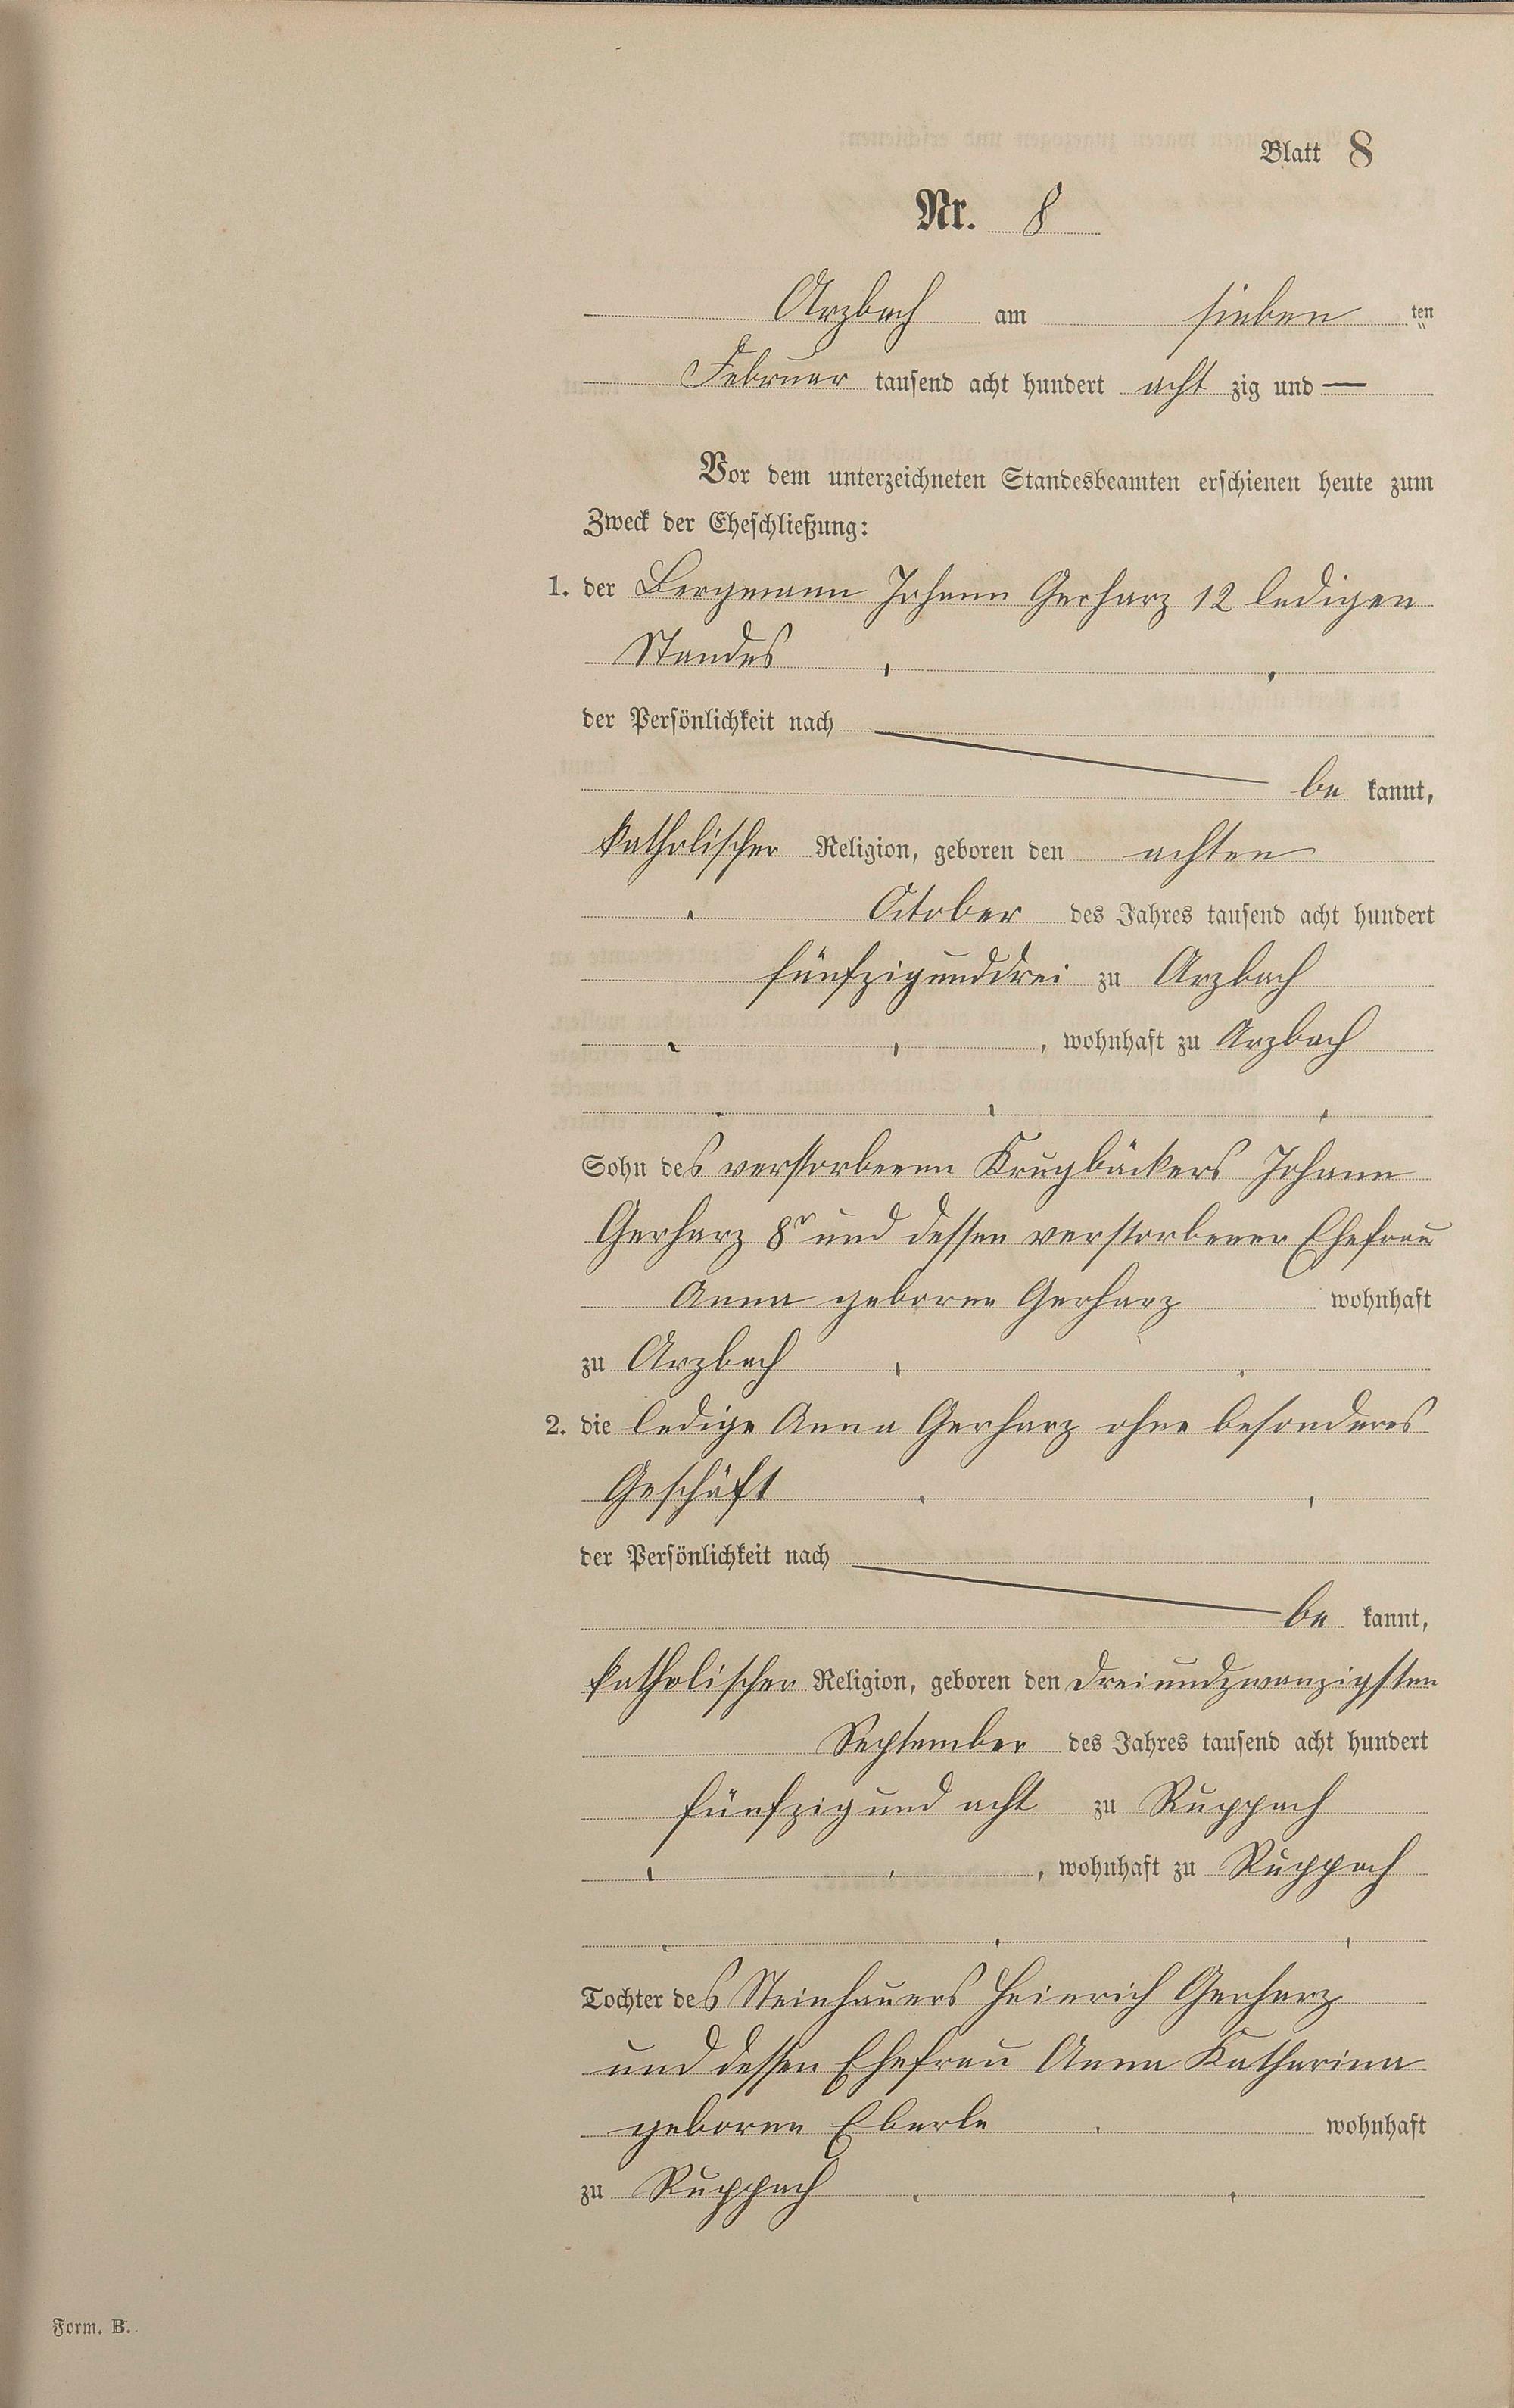 Blatt 8
Nr. 8
Arzbach am sieben ten
Februar tausend acht hundert acht zig und —
Vor dem unterzeichneten Standesbeamten erschienen heute zum
Zweck der Eheschließung:
1. der Bergmann Johann Gerharz 12 ledigen
Standes
der Persönlichkeit nach
be kannt,
katholischer Religion, geboren den achten
October des Jahres tausend acht hundert
fünfzigunddrei zu Arzbach
, wohnhaft zu Arzbach
Sohn des verstorbenen Krugbäckers Johann
Gerharz 8r und dessen verstorbener Ehefrau
Anna geborene Gerharz wohnhaft
zu Arzbach
2. die ledige Anna Gerharz ohne besonderes
Geschäft
der Persönlichkeit nach
be kannt,
katholischer Religion, geboren den dreiundzwanzigsten
September des Jahres tausend acht hundert
fünfzig und acht zu Ruppach
, wohnhaft zu Ruppach
Tochter des Steinhauers Heinrich Gerharz
und dessen Ehefrau Anna Katharina
geborene Eberle wohnhaft
zu Ruppach
Form. B.